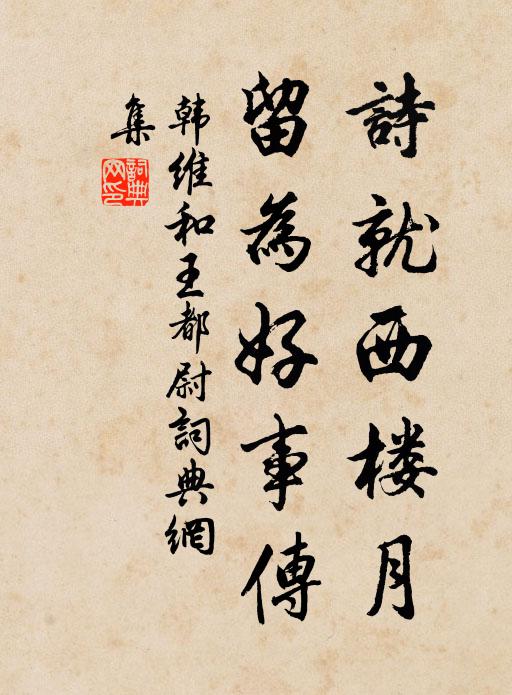 詩就西楼月
留為好事傳
韩维和王都尉詞典網
集
詞典網印